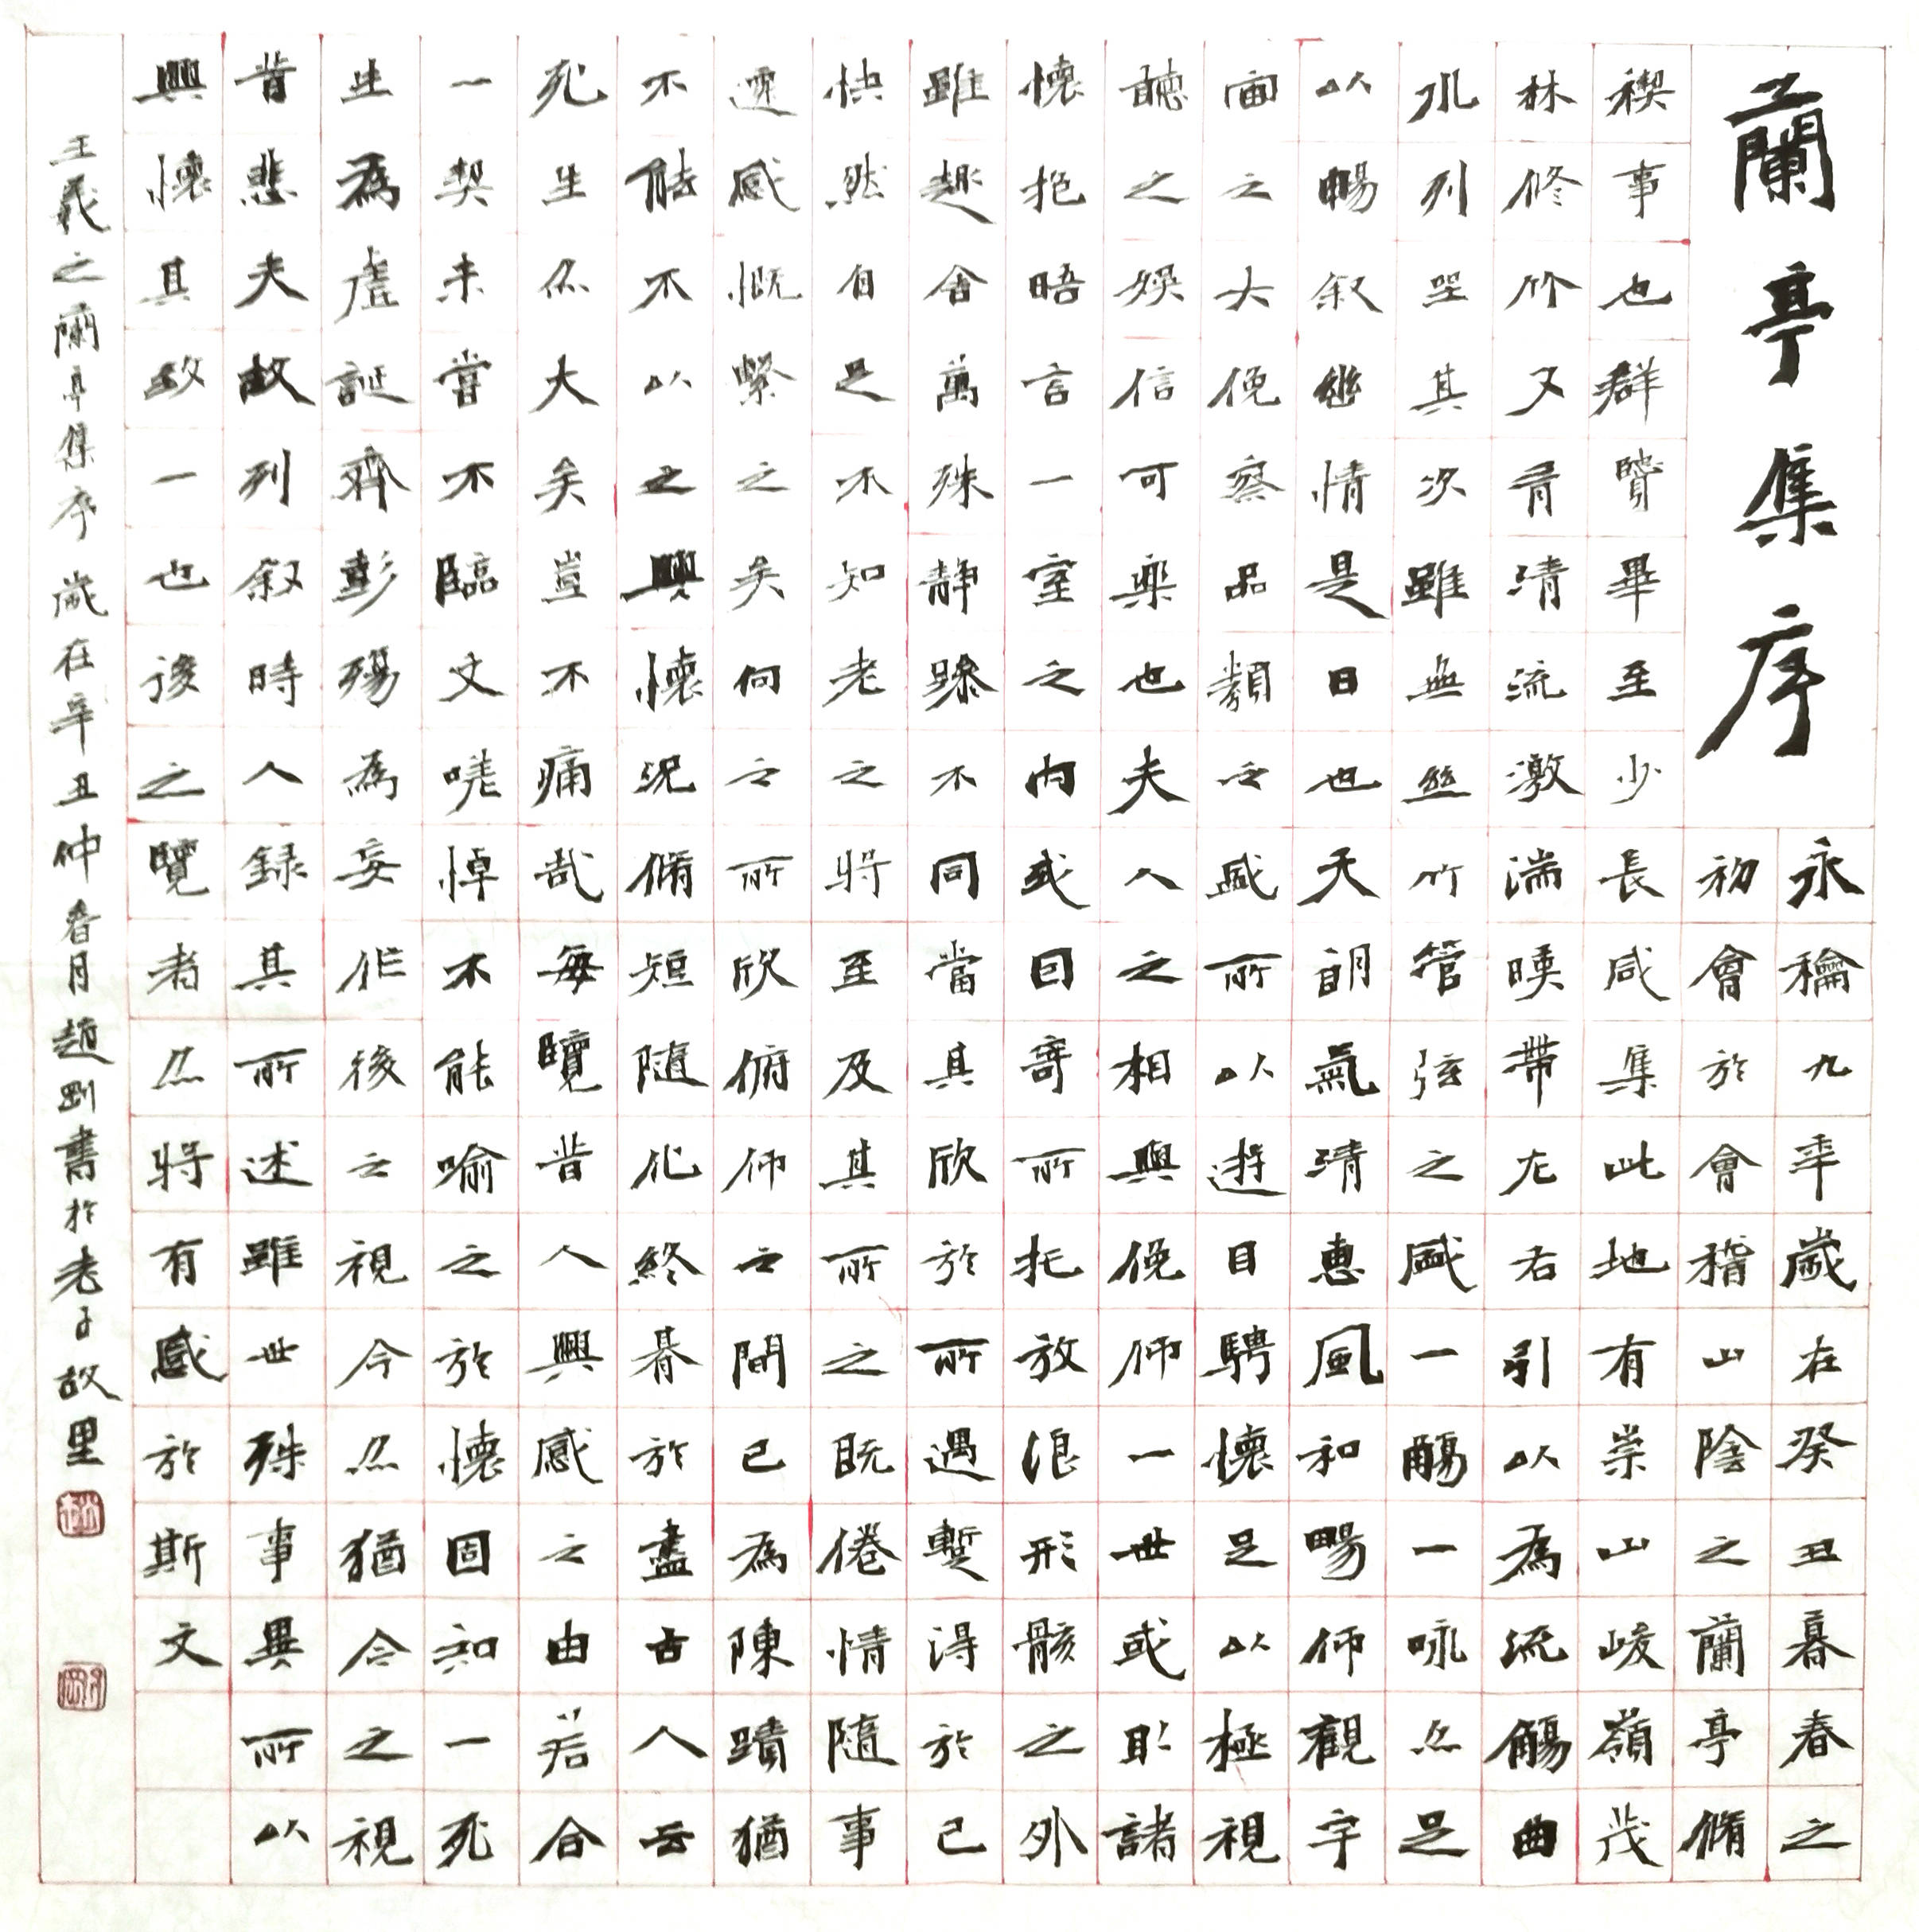 蘭亭集序
永龢九年歲在癸丑暮春之
初會於會稽山陰之蘭亭脩
禊事也群賢畢至少長咸集此地有崇山峻嶺茂
林修竹又有清流激湍暎帶左右引以為流觴曲
水列坐其次雖無絲竹管弦之盛一觴一詠亦足
以暢叙幽情是日也天朗氣清惠風和暢仰觀宇
宙之大俛察品類之盛所以遊目騁懷足以極視
聽之娛信可樂也夫人之相與俛仰一世或取諸
懷抱晤言一室之內或因寄所托放浪形骸之外
雖趣舍萬殊靜躁不同當其欣於所遇暫得於己
快然自足不知老之將至及其所之既倦情隨事
遷感慨繫之矣向之所欣俯仰之間已為陳蹟猶
不能不以之興懷況脩短隨化終朞於盡古人云
死生亦大矣豈不痛哉每覽昔人興感之由若合
一契未嘗不臨文嗟悼不能喻之於懷固知一死
生為虛誕齊彭殤為妄作後之視今亦猶今之視
昔悲夫故列叙時人錄其所述雖世殊事異所以
興懷其致一也後之覽者亦將有感於斯文
王羲之蘭亭集序 歲在辛丑仲春月趙剛書於老子故里